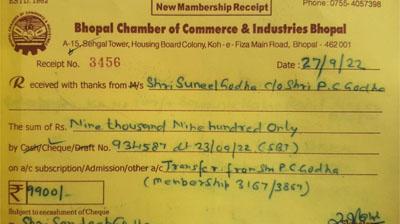 ESTD. 1862
Phone: 0755-4057398
New Mambership Receipt
Bhopal Chamber of Commerce & Industries Bhopal
A-15, Bengal Tower, Housing Board Colony, Koh-e-Fiza Main Road, Bhopal - 462 001
Receipt No. 3456 Date : 27/9/22
Received with thanks from M/s Shri Suneel Godha c/o Shri P.C Godha
The sum of Rs. Nine thousand Nine hundred Only
by Cash/Cheque/Draft No. 934587 dt 23/09/22 (SBI)
on a/c subscription/Admission/other a/c Transfer from Shri P.C Godha
(Membership 3167/3867)
₹ 9900/-
Subject to encashment of Cheque